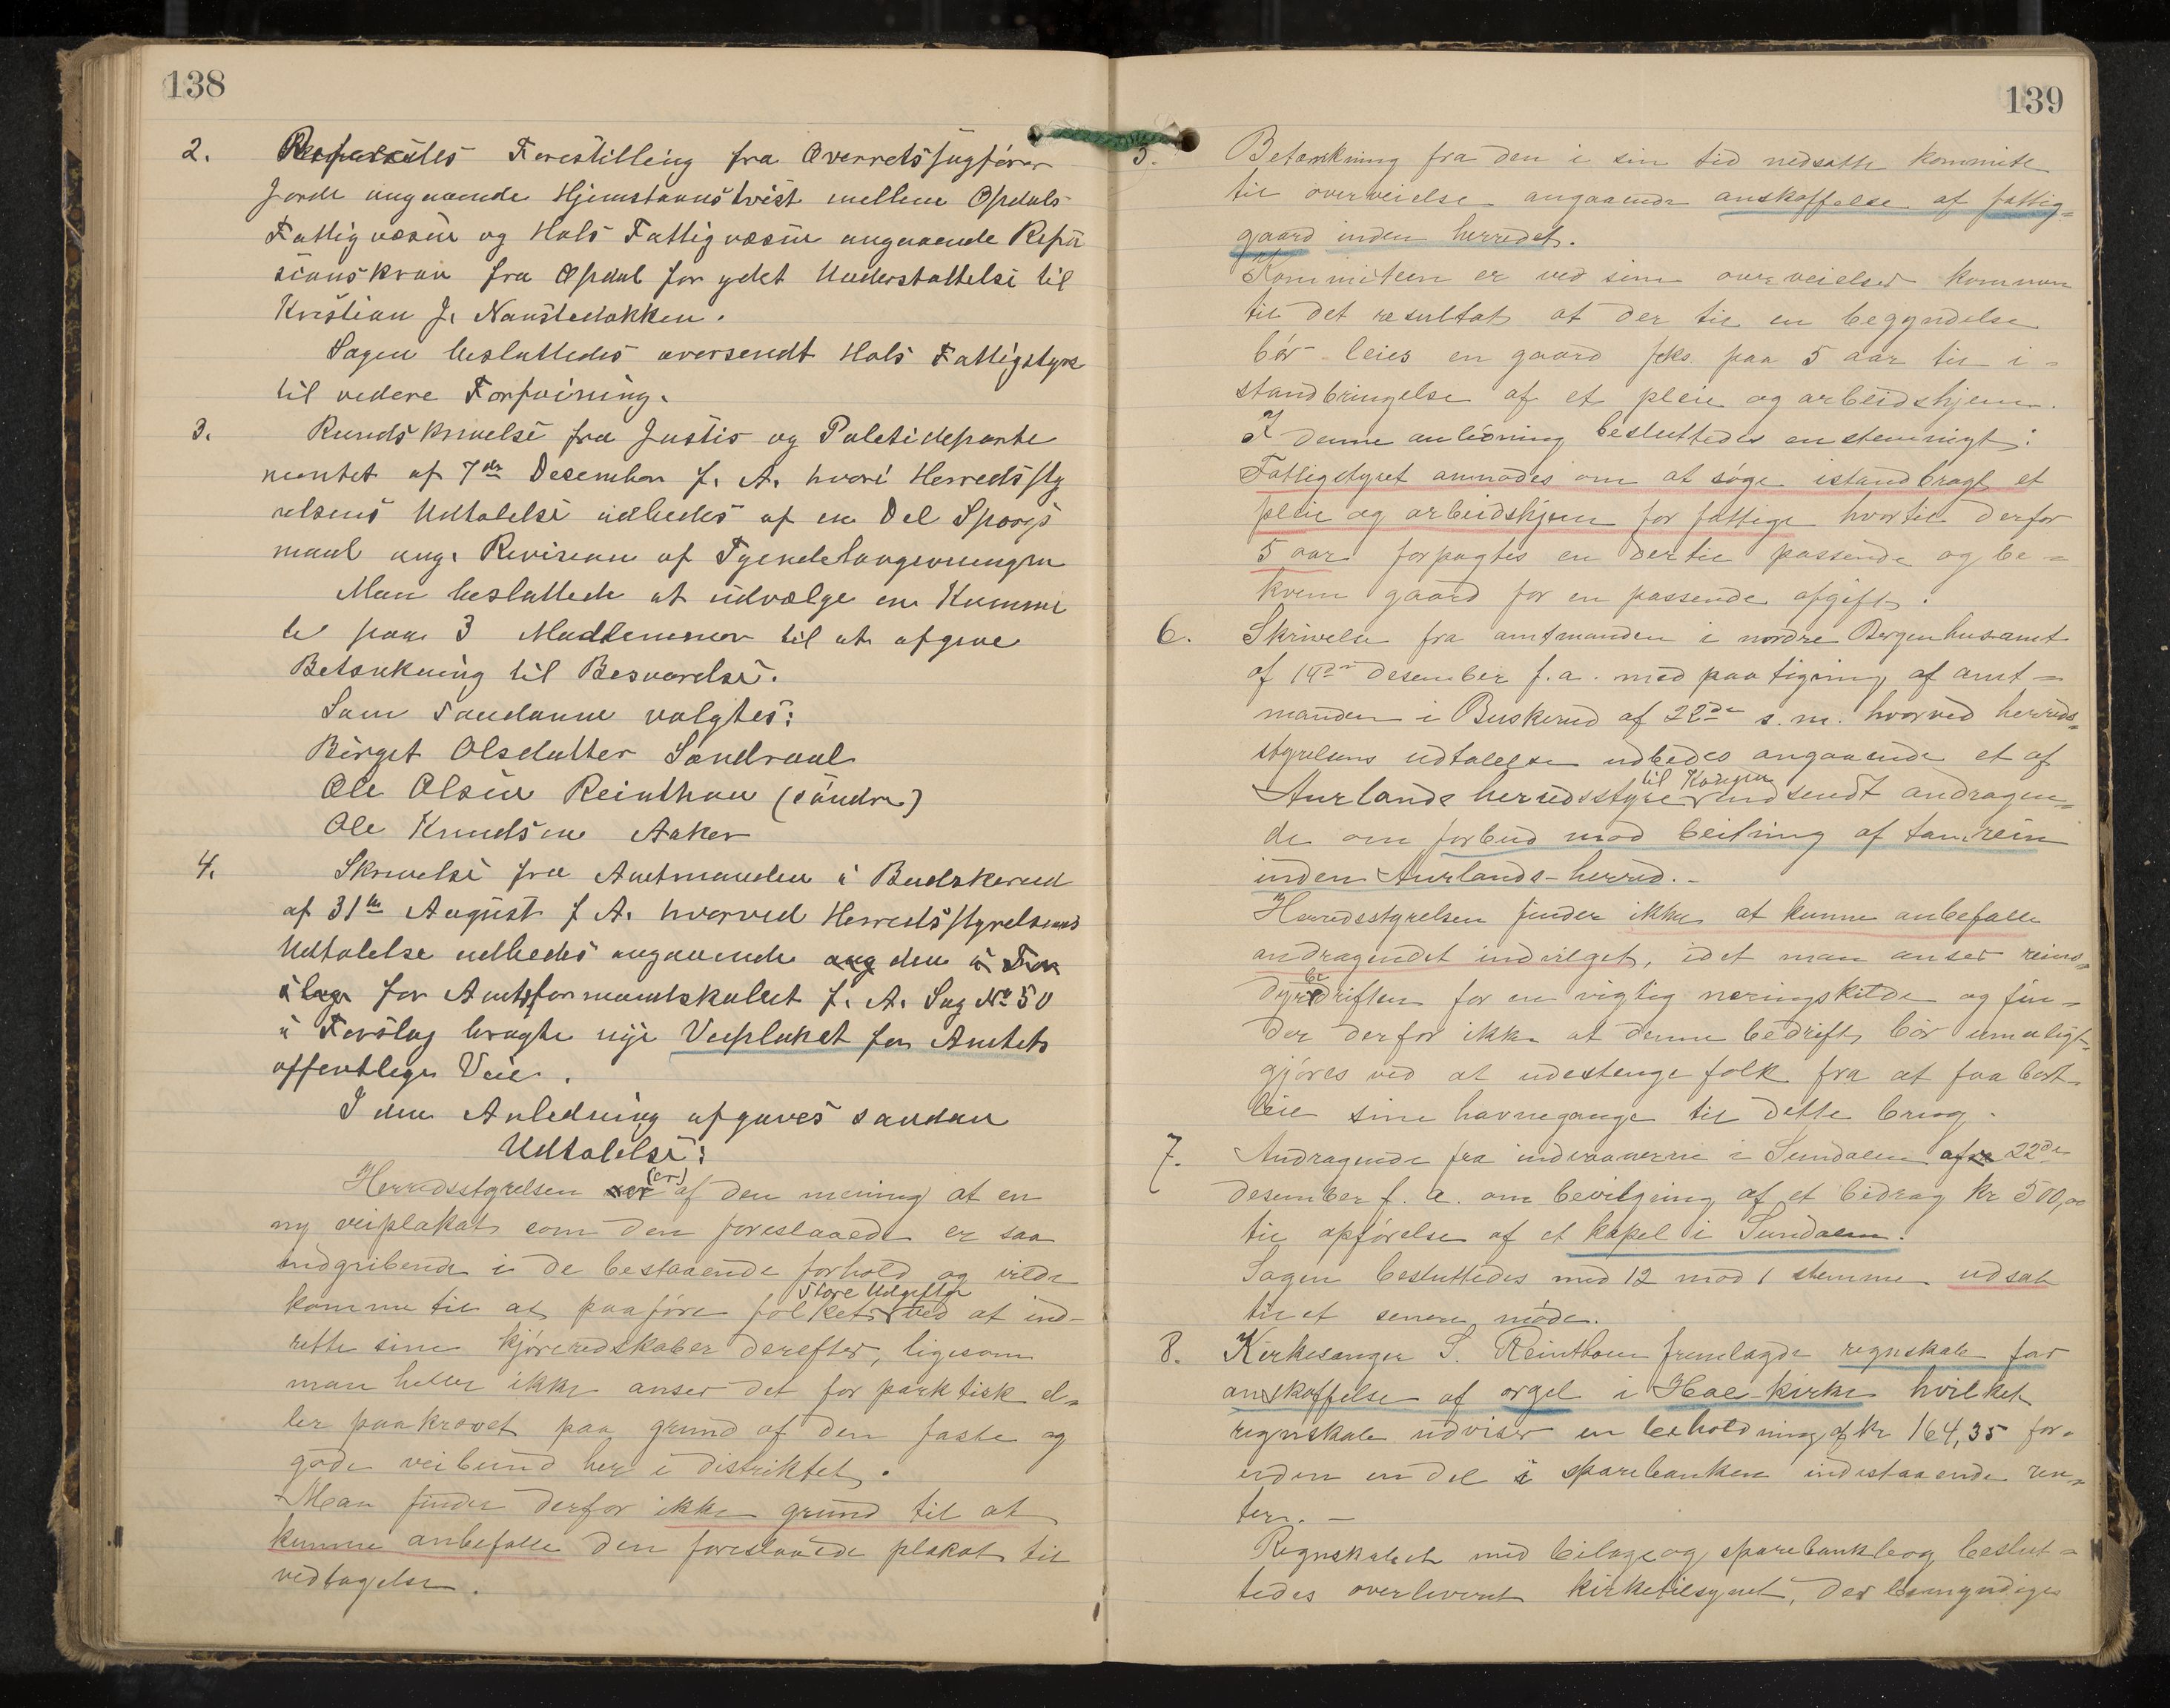 138
2. Refereredes Forestilling fra Overretssagfører
Jorde angaaende Hjemstavnstvist mellem Opdals
Fattigvæsen og Hols Fattigvæsen angaaende Refu
sionskrav fra Opdal for ydet Understøttelse til
Kristian J. Naustedokken.
Sagen besluttedes oversendt Hols Fattigstyre
til videre Forføining.
3. Rundskrivelse fra Justis og Politideparte
mentet af 7de Desember f. A. hvori Herredssty
relsens Udtalelse udbedes af en Del Spørgs
maal ang. Revision af Tyendelovgivningen
Man besluttede at udvælge en Kommi
te paa 3 Medlemmer til at afgive
Betænkning til Besvarelse.
Som saadanne valgtes:
Birget Olsdatter Sandraal
Ole Olsen Reinthon (søndre)
Ole Knudsen Aaker
4. Skrivelse fra Amtmanden i Budskerud
af 31te August f A. hvorved Herredsstyrelsens
Udtalelse udbedes angaaende ang den i For
slag for Amtsformandskabet f. A. Sag No 50
i Forslag bragte nye Veiplakat for Amtets
offentlige Veie.
I den Anledning afgaves saadan
Udtalelse:
(er)
Herredsstyrelsen er af den mening at en
ny veiplakat som den foreslaaede er saa
indgribende i de bestaaende forhold og vilde
Store Udgifter
komme til at paaføre folket ved at ind-
rette sine kjøreredskaber derefter, ligesom
man heller ikke anser det for parktisk el=
ler paakrævet paa grund af den faste og
gode veibund her i distriktet.
Man finder derfor ikke grund til at
kunne anbefalle den foreslaaede plakat til
vedtagelse.
139
5. Betænkning fra den i sin tid nedsatte kommite
til overveielse angaaende anskaffelse af fattig=
gaard inden herredet.
Kommiteen er ved sine overveielser kommen
til det resultat at der til en begyndelse
bør leies en gaard feks. paa 5 aar til i=
standbringelse af et pleie og arbeidshjem.
I denne anledning besluttedes enstemmigt:
Fattigstyret anmodes om at søge istandbragt et
pleie og arbeidshjem for fattige hvortil derfor
5 aar forpagtes en dertil passende og be=
kvem gaard for en passende afgift.
6. Skrivelse fra amtmanden i nordre Bergenhusamt
af 19de desember f.a. med paategning af amt=
manden i Buskerud af 22de s.m. hvorved herreds=
styrelsens udtalelse udbedes angaaende et af
til Kongen
Aurlands herredsstyre indsendt andragen=
de om forbud mod beitning af tamrein
inden Aurlands-herred.-
Herredsstyrelsen finder ikke at kunne anbefalle
andragendet indvilget, idet man anser reins=
be
dyrdriften for en vigtig næringskilde og fin=
der derfor ikke at denne bedrift bør umuligt=
gjøres ved at udestenge folk fra at faa bort=
leie sine havnegange til dette brug.
7. Andragende fra indvaanerne i Sundalen af 22de
desember f. a. om bevilgning af et bidrag kr 500,00
til opførelse af et kapel i Sundalen.
Sagen besluttedes med 12 mod 1 stemme udsat
til et senere møde.
8. Kirkesanger S. Reinthon fremlagde regnskab for
anskaffelse af orgel i Hol kirke hvilket
regnskab udviser en beholdning af kr 164,35 for=
uden en del i sparebanken indestaaende ren=
ter. –
Regnskabet med bilage og sparebankbog beslut=
tedes overleveret kirketilsynet, der bemyndiges